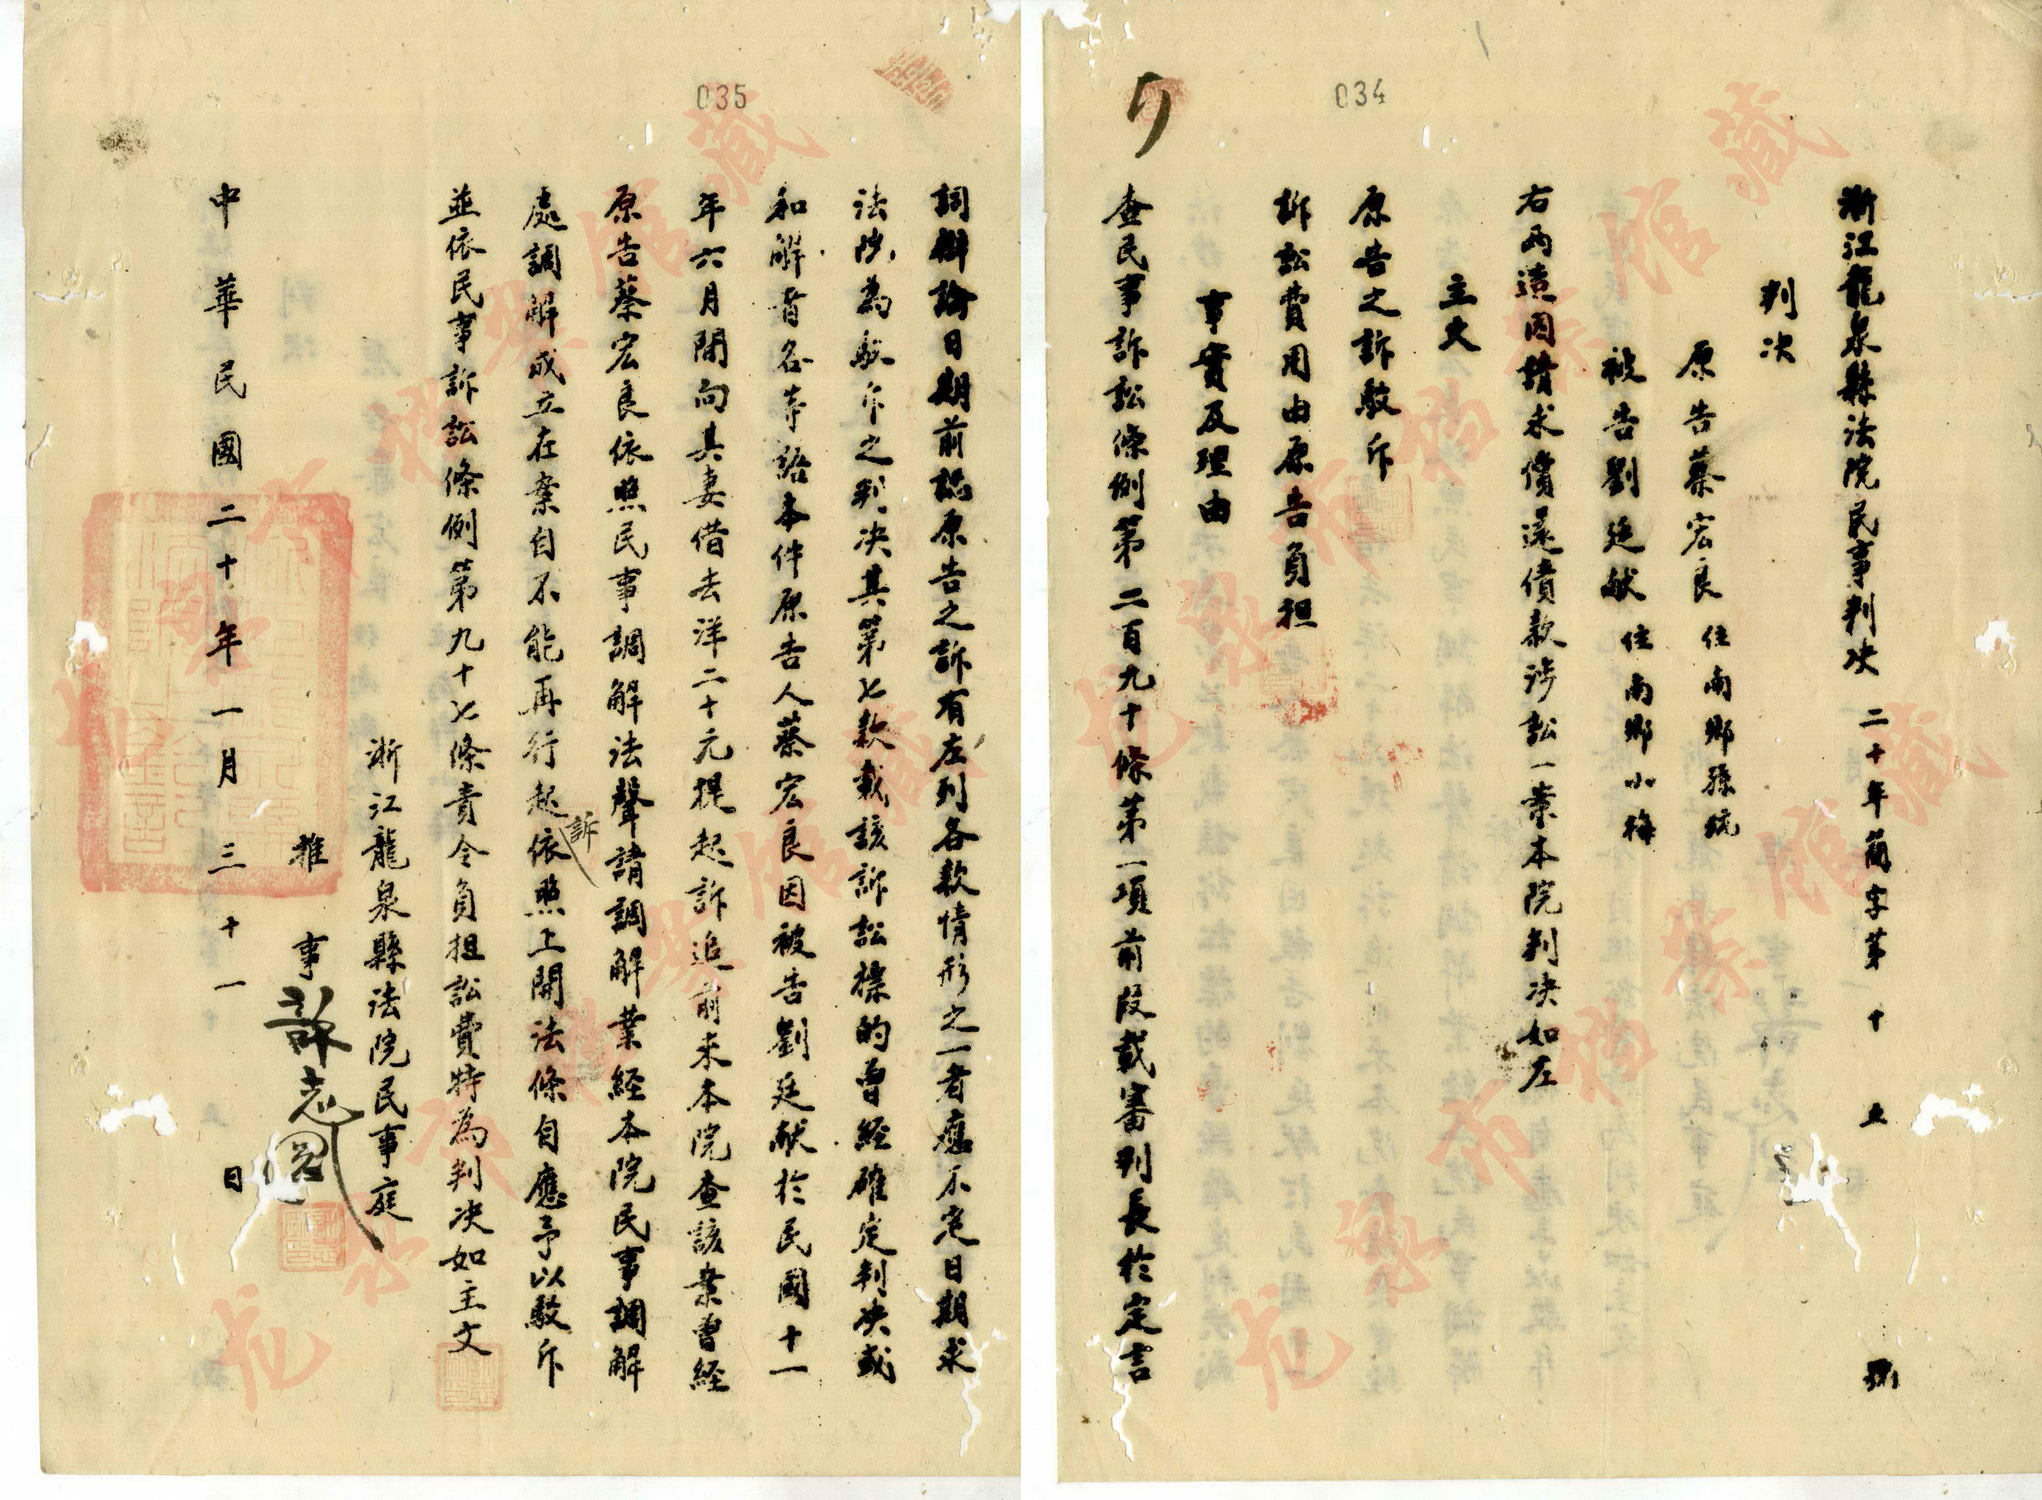 034
浙江龍泉縣法院民事判决 二十年簡字第十五號
判决
原告蔡宏良 住南鄉孫坑
被告劉廷献 住南鄉小梅
右兩造因請求償還債款涉訟一案本院判决如左
主文
原告之訴駁斥
訴訟費用由原告負担
事實及理由
查民事訴訟條例第二百九十條第一項前段載審判長於定言
035
詞辯論日期前認原告之訴有左列各款情形之一者應不定日期求
法院為駁斥之判决其第七款載該訴訟標的曾経確定判决或
和解者各等語本件原告人蔡宏良因被告劉廷献於民國十一
年六月間向其妻借去洋二十元提起訴追前来本院查該案曾経
原告蔡宏良依照民事調解法聲請調解業経本院民事調解
處調解成立在案自不能再行起訴依照上開法條自應予以駁斥
並依民事訴訟條例第九十七條責令負担訟費特為判决如主文
浙江龍泉縣法院民事庭
推事
中華民國二十年一月三十一日
龙泉市档案馆藏
龙泉市档案馆藏
龙泉市档案馆藏
龙泉市档案馆藏